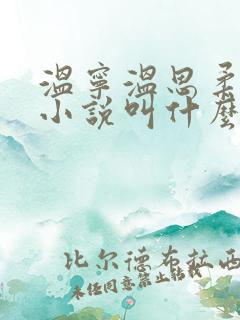 溫寧溫思柔
小說叫什麼
比尔德布拉西
未经同意禁止转载